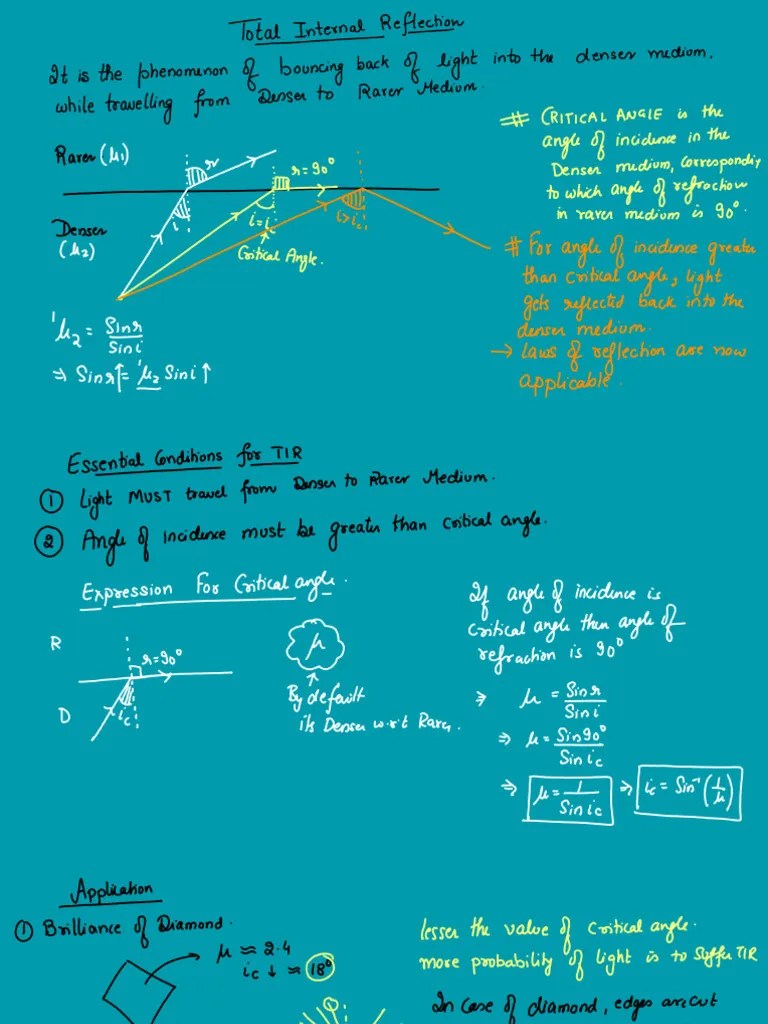 Total Internal Reflection
It is the phenomenon of bouncing back of light into the denser medium.
while travelling from Denser to Rarer Medium.
Rarer (μ1)
r
r=90°
Denser
(μ2)
i
i=ic
i>ic
Critical Angle.
# CRITICAL ANGLE is the
angle of incidence in the
Denser medium, corresponding
to which angle of refraction
in rarer medium is 90°.
# For angle of incidence greater
than critical angle, light
gets reflected back into the
denser medium.
→ Laws of reflection are now
applicable.
¹μ2 = Sin r / Sin i
⇒ Sin r↑ = ¹μ2 Sin i ↑
Essential Conditions for TIR
① Light MUST travel from Denser to Rarer Medium.
② Angle of incidence must be greater than critical angle.
Expression For Critical angle.
R
r=90°
D
ic
μ
By default
its Denser w.r.t Rarer.
If angle of incidence is
critical angle then angle of
refraction is 90°
⇒ μ = Sin r / Sin i
⇒ μ = Sin 90° / Sin ic
⇒ μ = 1 / Sin ic ⇒ ic = Sin⁻¹(1/μ)
Application
① Brilliance of Diamond.
μ ≈ 2.4
ic ↓ ≈ 18°
lesser the value of critical angle.
more probability of light is to suffer TIR
In case of diamond, edges are cut